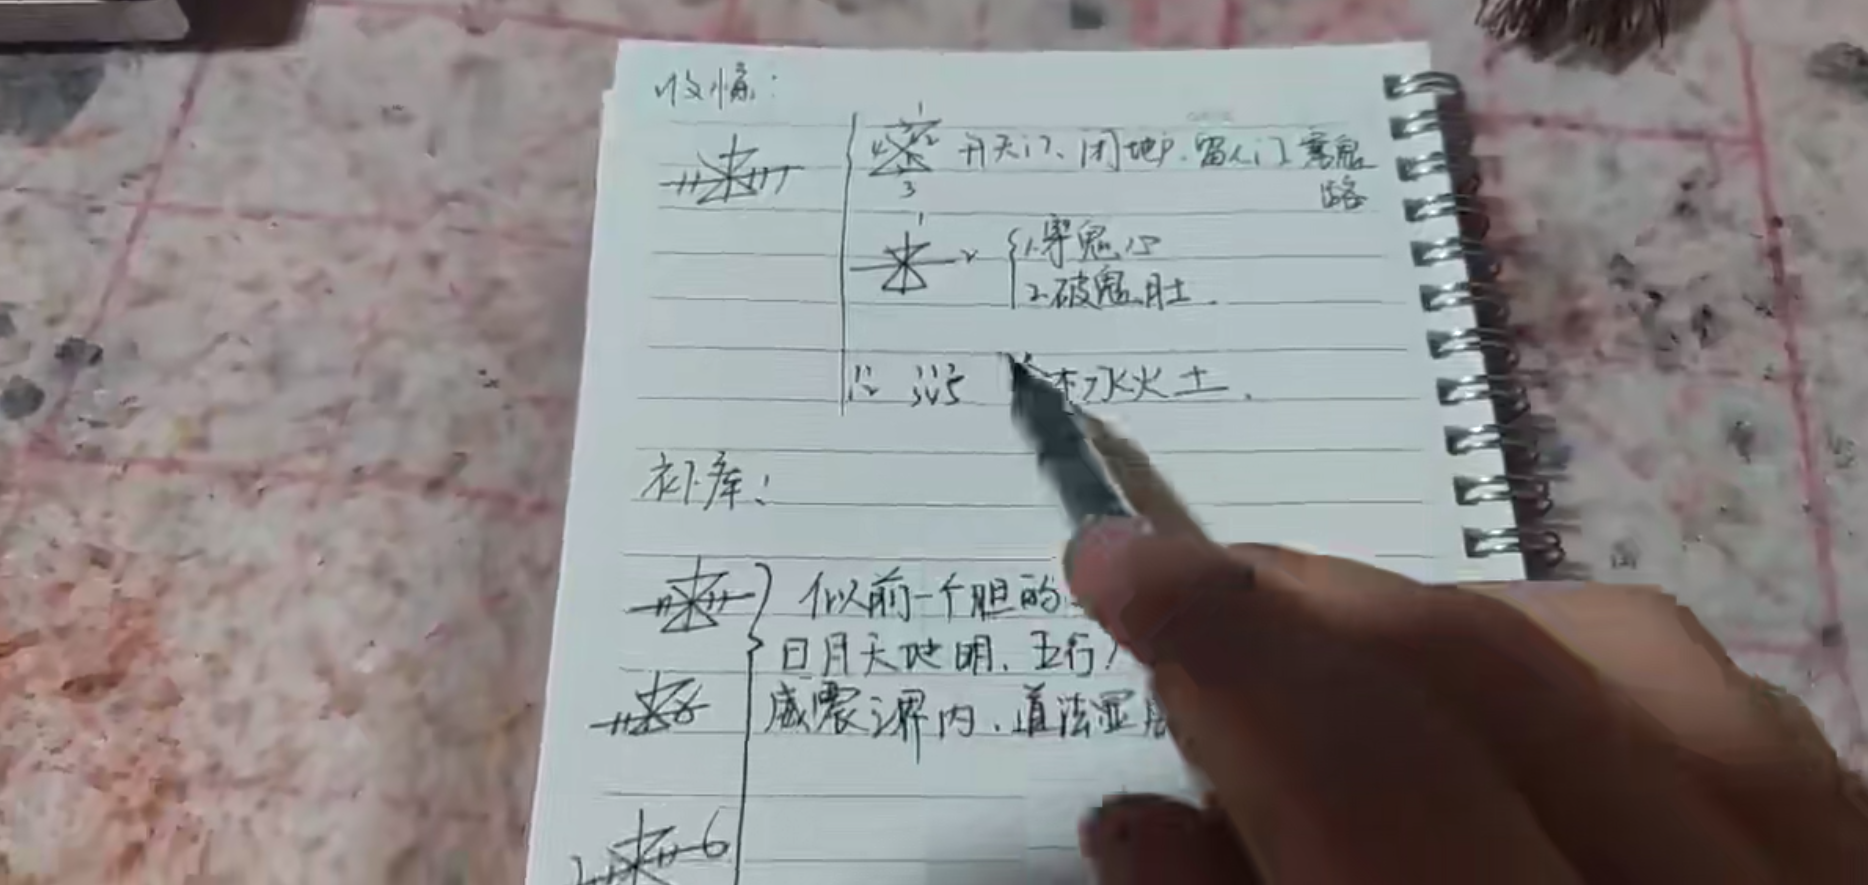 收惊：
1
4 2 开天门、闭地户、留人门、塞鬼
3 路
1
2 1.穿鬼心
2.破鬼肚.
1 2 3 4 5 木水火土.
补库：
似前一个胆的
日月天地明、五行
威震三界内.道法显
6